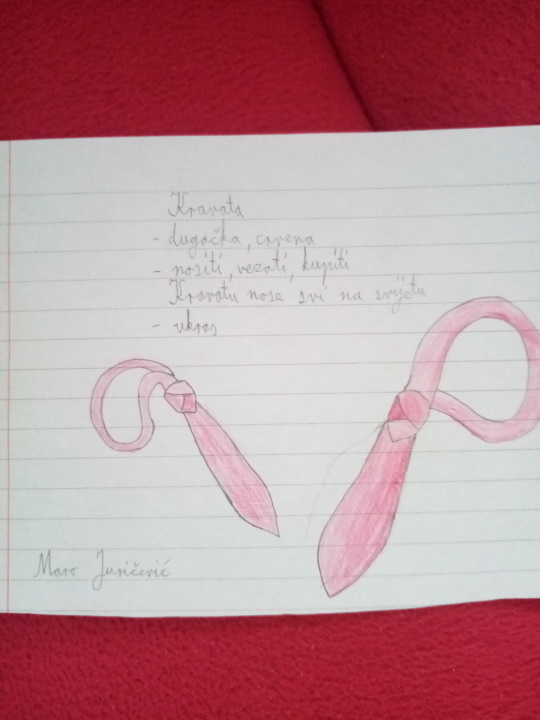 Kravata
- dugačka, crvena
- nositi, vezati, kupiti
Kravatu nose svi na svijetu
- ukras
Maro Juričević